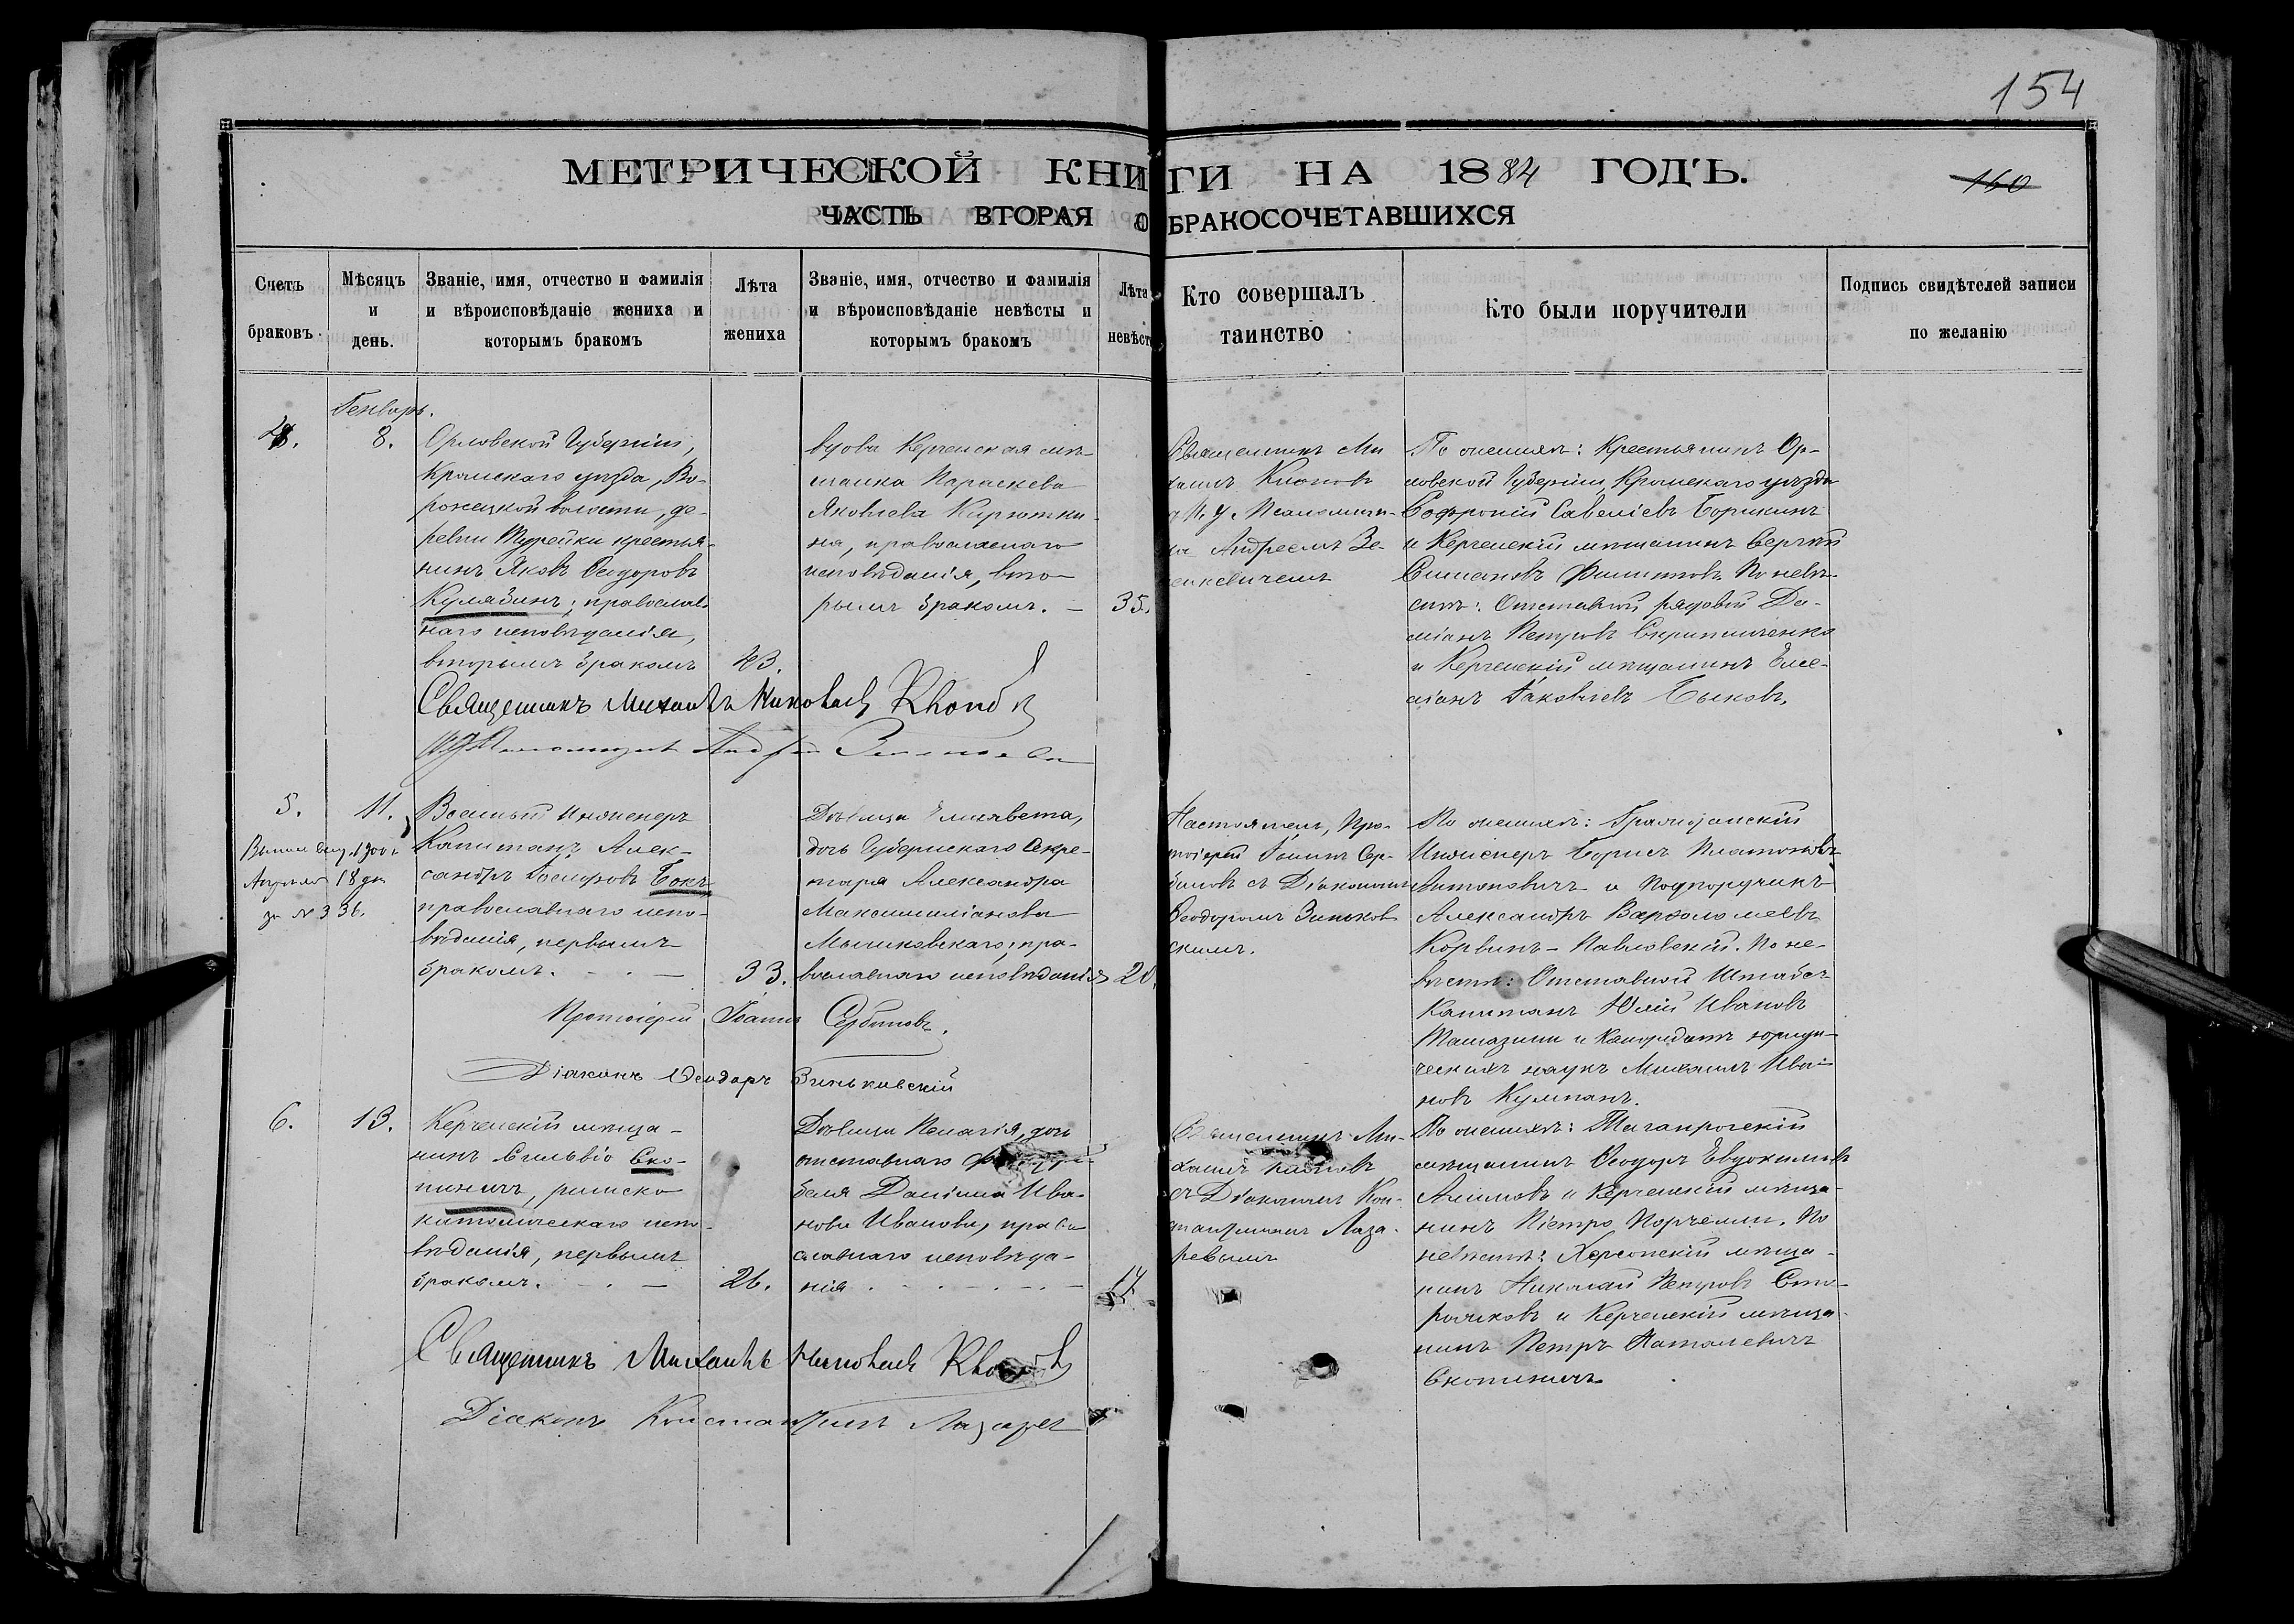 154
МЕТРИЧЕСКОЙ КНИГИ НА 1884 ГОДЪ.
160
ЧАСТЬ ВТОРАЯ О БРАКОСОЧЕТАВШИХСЯ
Счетъ
браковъ.
Мѣсяцъ
и
день.
Званіе, имя, отчество и фамилія
и вѣроисповѣданіе жениха и
которымъ бракомъ
Лѣта
жениха
Званіе, имя, отчество и фамилія
и вѣроисповѣданіе невѣсты и
которымъ бракомъ
Лѣта
невѣсты
Кто совершалъ
таинство
Кто были поручители
Подпись свидѣтелей записи
по желанію
Генварь.
8.
Орловской Губерніи,
Кромскаго уѣзда, Во-
ронецкой волости, де-
ревни крестья-
нинъ Яковъ Ѳеодоровъ
Кулябинъ, православ-
наго исповѣданія,
вторымъ бракомъ
43.
вдова Керченская мѣ-
щанка Параскева
Яковлева Кирютки-
на, православнаго
исповѣданія, вто-
рымъ бракомъ. —
35.
Священникъ Ми
хаилъ Кноповъ
Псаломщи-
ка Андреемъ Зе-
ленкевичемъ
По женихѣ: Крестьянинъ Ор-
ловской Губерніи, Кромскаго уѣзда
Софроній Савеліевъ Борикинъ
и Керченскій мѣщанинъ Сергѣй
Симановъ Филиповъ По невѣ-
стѣ: Отставной рядовой Да-
міанъ Петровъ
и Керченскій мѣщанинъ Еме-
ліанъ Іаковлевъ Быковъ.
Священникъ Михаилъ Николаевъ
Андрей
5.
11.
Выписъ выд. 1900 г.
Апрѣля 18 дн
за № 336.
Военный инженеръ
Капитанъ Алек-
сандръ Іосифовъ Бокъ
православнаго испо-
вѣданія, первымъ
бракомъ. — . —
33.
Дѣвица Елисавета,
дочь Губернскаго Секре-
таря Александра
Максимиліанова
Мышковскаго, пра-
вославнаго исповѣданія
20.
Настоятель, Про-
тоіерей Іоаннъ Сер-
биновъ съ Діакономъ
Ѳеодоромъ Зиньков
скимъ.
По женихѣ: Гражданскій
Инженеръ Борисъ Платоновъ
Антоновичъ и Подпоручикъ
Александръ Варѳоломеевъ
Корвинъ-Павловскій. По не-
вѣстѣ: Отставной Штабсъ-
Капитанъ Юлій Ивановъ
и Кандидатъ юриди-
ческихъ наукъ Михаилъ Ива-
новъ Кулманъ.
Протоіерей Іоаннъ Сербиновъ.
Діаконъ Ѳеодоръ Зиньковскій
6.
13.
Керченскій мѣща-
нинъ Сильвіо Ско-
пиничъ, римско
католическаго испо-
вѣданія, первымъ
бракомъ. — . —
26.
Дѣвица Пелагія, дочь
отставнаго
беля Даніила Ива-
нова Иванова, право
славнаго исповѣда-
нія . - . - . —
17
Священникъ Ми-
хаилъ Кноповъ
съ Діакономъ Кон-
стантиномъ Лаза-
ревымъ
По женихѣ: Таганрогскій
мѣщанинъ Ѳеодоръ Евдокимовъ
Алимовъ и Керченскій мѣща-
нинъ Піетро Порчелли. По
невѣстѣ: Херсонскій мѣща-
нинъ Николай Петровъ Сто-
рожковъ и Керченскій мѣща-
нинъ Петръ Наталевичъ
Скопиничъ
Священникъ Михаилъ Николаевъ
Діаконъ Константинъ Лазарев